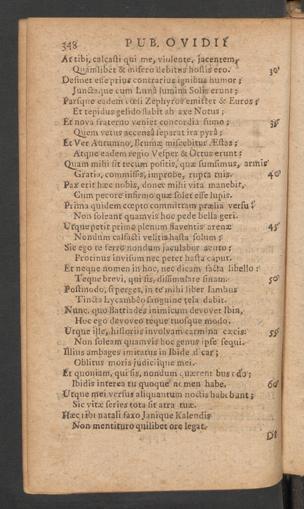 348 PUB. OVIDII
At tibi, calcasti qui me, violente, jacentem,
Quamlibet & misero debitus hostis ero. 30
Desinet esse prius contrarius ignibus humor;
Junctaque cum Lunâ lumina Solis erunt;
Parsque eadem cœli Zephyros emittet & Euros;
Et tepidus gelido flabit ab axe Notus;
Et nova fraterno veniet concordia fumo; 35
Quem vetus accensâ separat ira pyrâ;
Et Ver Autumno, Brumæ miscebitur Æstas;
Atque eadem regio Vesper & Ortus erunt;
Quam mihi sit tecum positis, quæ sumsimus, armis
Gratia, commissis, improbe, rupta tuis. 40
Pax erit hæc nobis, donec mihi vita manebit,
Cum pecore infirmo quæ solet esse lupis.
Prima quidem cœpto committam prælia versu;
Non soleant quamvis hoc pede bella geri.
Utque petit primo plenum flaventis arenæ 45
Nondum calfacti velitis hasta solum;
Sic ego te ferro nondum jaculabor acuto;
Protinus invisum nec petet hasta caput.
Et neque nomen in hoc, nec dicam facta libello:
Teque brevi, qui sis, dissimulare sinam. 50
Postmodo, si perges, in te mihi liber Iambus
Tincta Lycambêo sanguine tela dabit.
Nunc, quo Battiades inimicum devovet Ibin,
Hoc ego devoveo teque tuosque modo.
Utque ille, historiis involvam carmina cæcis: 55
Non soleam quamvis hoc genus ipse sequi.
Illius ambages imitatus in Ibide dicar;
Oblitus moris judiciique mei.
Et quoniam, qui sis, nondum quærentibus edo;
Ibidis interea tu quoque nomen habe. 60
Utque mei versus aliquantum noctis habebunt;
Sic vitæ series tota sit atra tuæ.
Hæc tibi natali faxo Janique Kalendis
Non mentituro quilibet ore legat.
Di